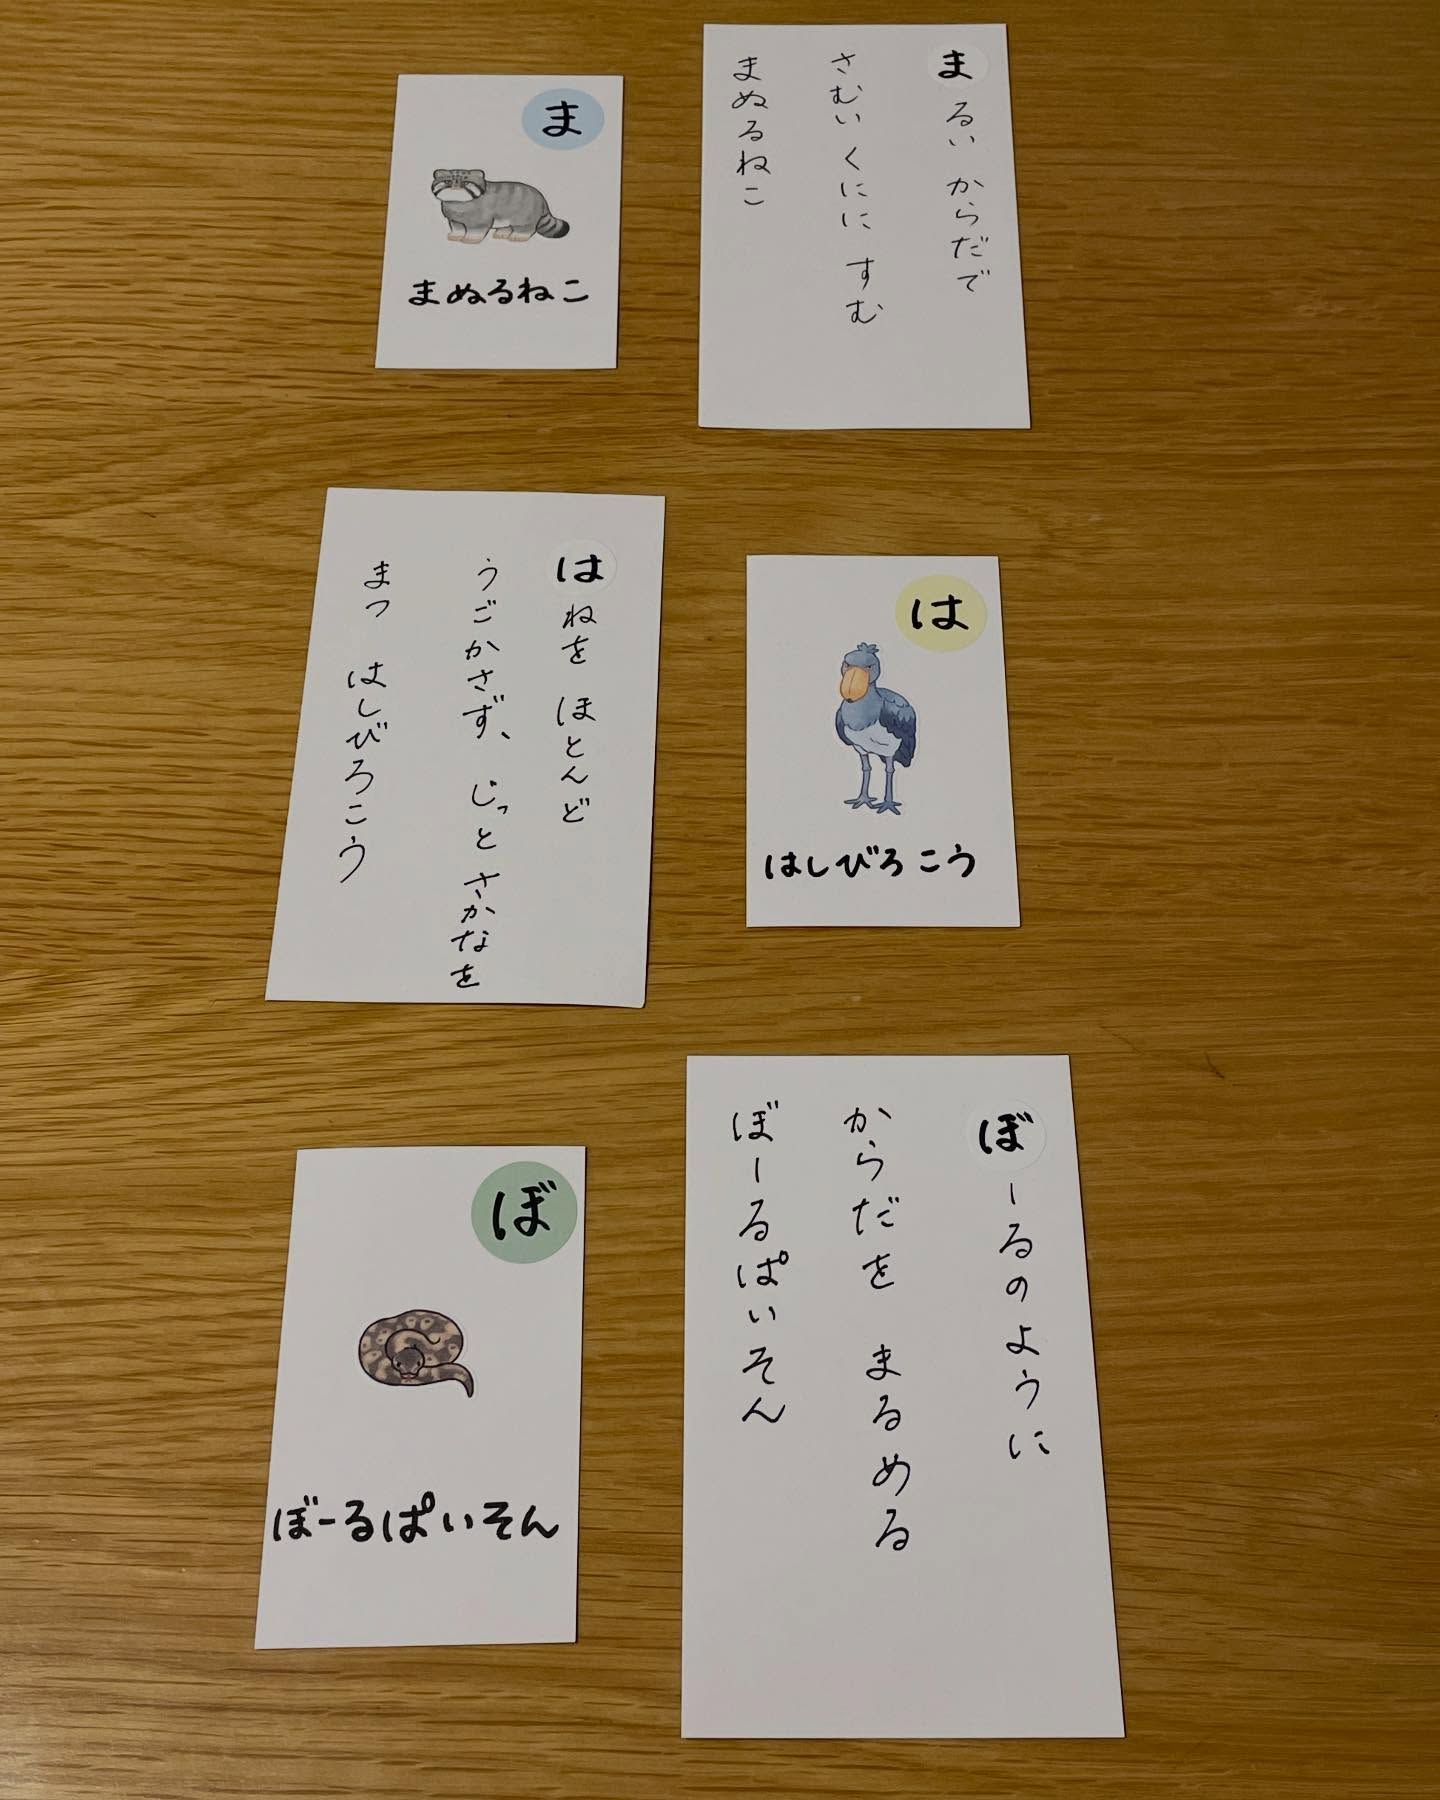 ま
まぬるねこ
まるい からだで
さむい くにに すむ
まぬるねこ
はねを ほとんど
うごかさず、じっと さかなを
まつ はしびろこう
は
はしびろこう
ぼ
ぼーるぱいそん
ぼーるのように
からだを まるめる
ぼーるぱいそん